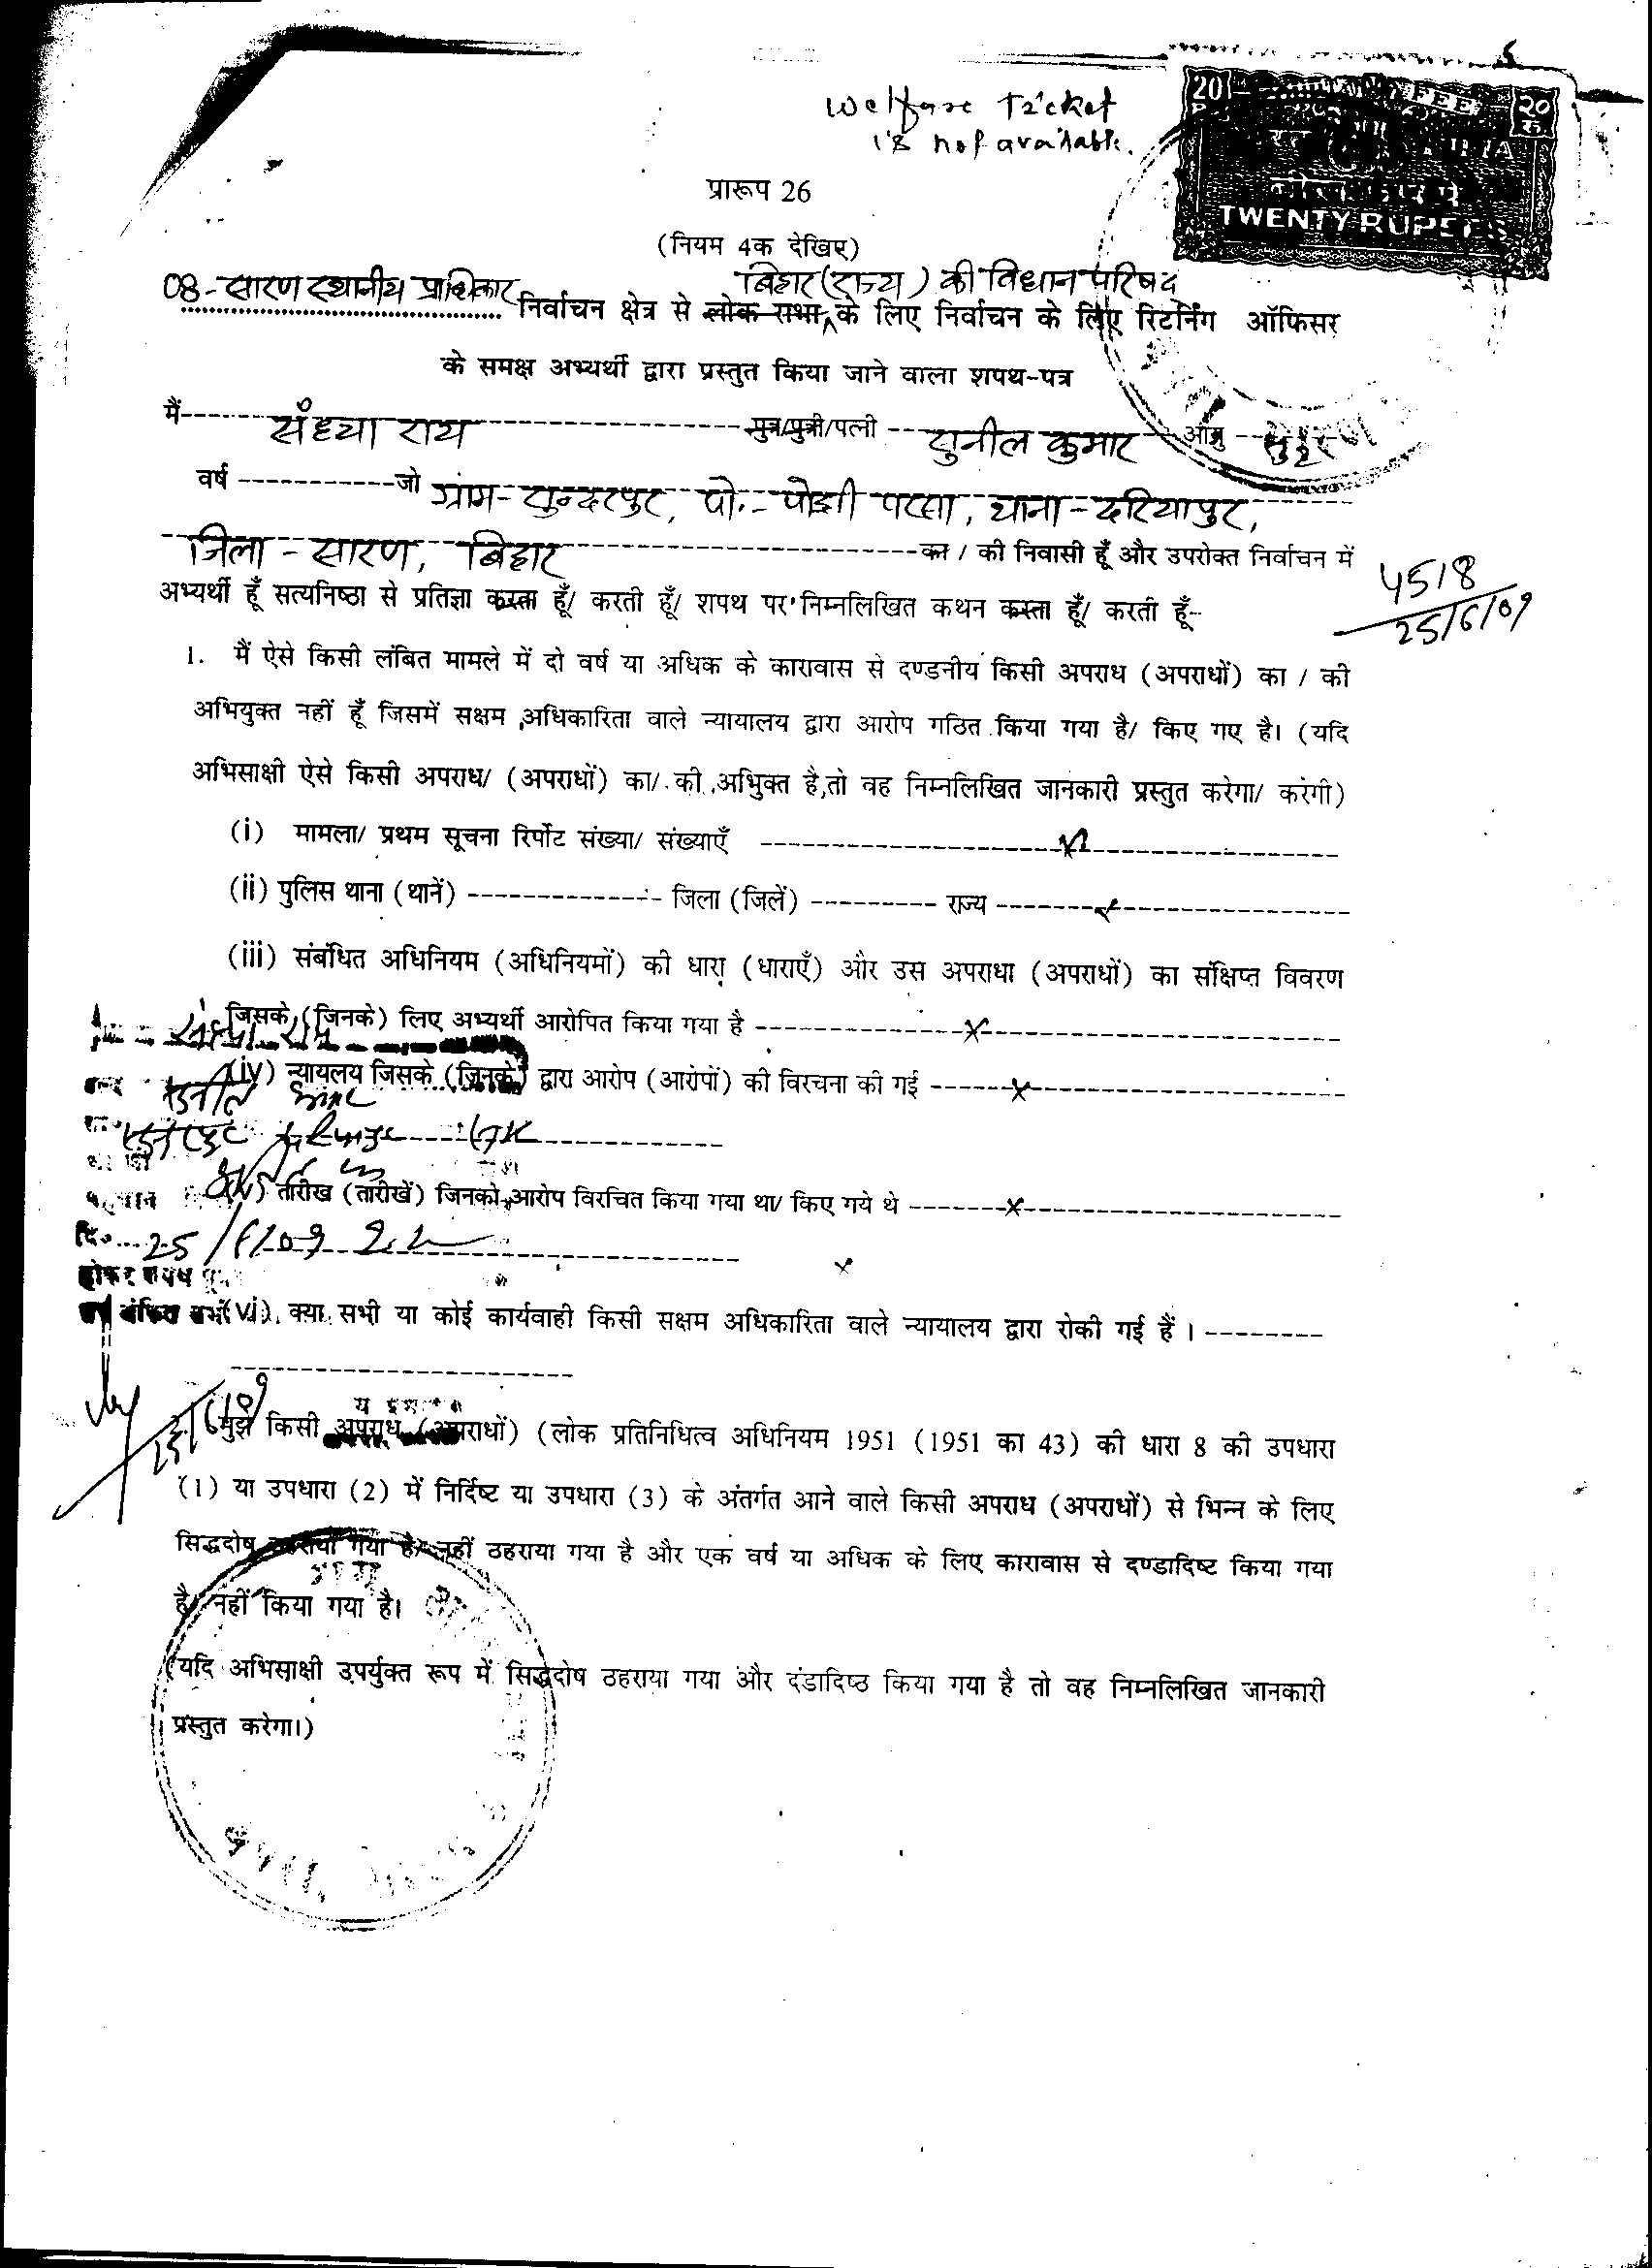 Welfare Ticket
is not available.
20 FEE २० रु.
TWENTY RUPEES
प्रारूप 26
(नियम 4क देखिए)
08-सारण स्थानीय प्राधिकार बिहार (राज्य) की विधान परिषद
निर्वाचन क्षेत्र से लोक सभा के लिए निर्वाचन के लिए रिटर्निंग ऑफिसर
के समक्ष अभ्यर्थी द्वारा प्रस्तुत किया जाने वाला शपथ-पत्र
मैं संध्या राय पुत्र/पुत्री/पत्नी सुनील कुमार आयु
वर्ष जो ग्राम-सुन्दरपुर, पो.- पोझी परसा, थाना-दरियापुर,
जिला-सारण, बिहार का / की निवासी हूँ और उपरोक्त निर्वाचन में
4518
25/6/09
अभ्यर्थी हूँ सत्यनिष्ठा से प्रतिज्ञा करता हूँ/ करती हूँ/ शपथ पर निम्नलिखित कथन करता हूँ/ करती हूँ-
1. मैं ऐसे किसी लंबित मामले में दो वर्ष या अधिक के कारावास से दण्डनीय किसी अपराध (अपराधों) का / की
अभियुक्त नहीं हूँ जिसमें सक्षम अधिकारिता वाले न्यायालय द्वारा आरोप गठित किया गया है/ किए गए है। (यदि
अभिसाक्षी ऐसे किसी अपराध/ (अपराधों) का/ की अभिुक्त है,तो वह निम्नलिखित जानकारी प्रस्तुत करेगा/ करेगी)
(i) मामला/ प्रथम सूचना रिर्पोट संख्या/ संख्याएँ x
(ii) पुलिस थाना (थानें) जिला (जिलें) राज्य x
(iii) संबंधित अधिनियम (अधिनियमों) की धारा (धाराएँ) और उस अपराधा (अपराधों) का संक्षिप्त विवरण
जिसके (जिनके) लिए अभ्यर्थी आरोपित किया गया है x
(iv) न्यायलय जिसके (जिनके) द्वारा आरोप (आरोपों) की विरचना की गई x
(v) तारीख (तारीखें) जिनको आरोप विरचित किया गया था/ किए गये थे x
दि० 25/6/09
x
(vi) क्या सभी या कोई कार्यवाही किसी सक्षम अधिकारिता वाले न्यायालय द्वारा रोकी गई हैं ।
मुझे किसी अपराध (अपराधों) (लोक प्रतिनिधित्व अधिनियम 1951 (1951 का 43) की धारा 8 की उपधारा
(1) या उपधारा (2) में निर्दिष्ट या उपधारा (3) के अंतर्गत आने वाले किसी अपराध (अपराधों) से भिन्न के लिए
सिद्धदोष ठहराया गया है/ नहीं ठहराया गया है और एक वर्ष या अधिक के लिए कारावास से दण्डादिष्ट किया गया
है/ नहीं किया गया है।
(यदि अभिसाक्षी उपर्युक्त रूप में सिद्धदोष ठहराया गया और दंडादिष्ठ किया गया है तो वह निम्नलिखित जानकारी
प्रस्तुत करेगा।)